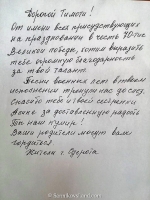 Дорогой Тимоти!
От имени всех присутствующих
на праздновании в честь 70-тия
Великой победы, хотим выразить
тебе огромную благодарность
за твой талант.
Песни военных лет в твоём
исполнении трепещут нас до слёз.
Спасибо тебе и твоей сестренки
за доставленную радость
Ты наш кумир!
Ваши родители могут вами
гордится.
Жители г.